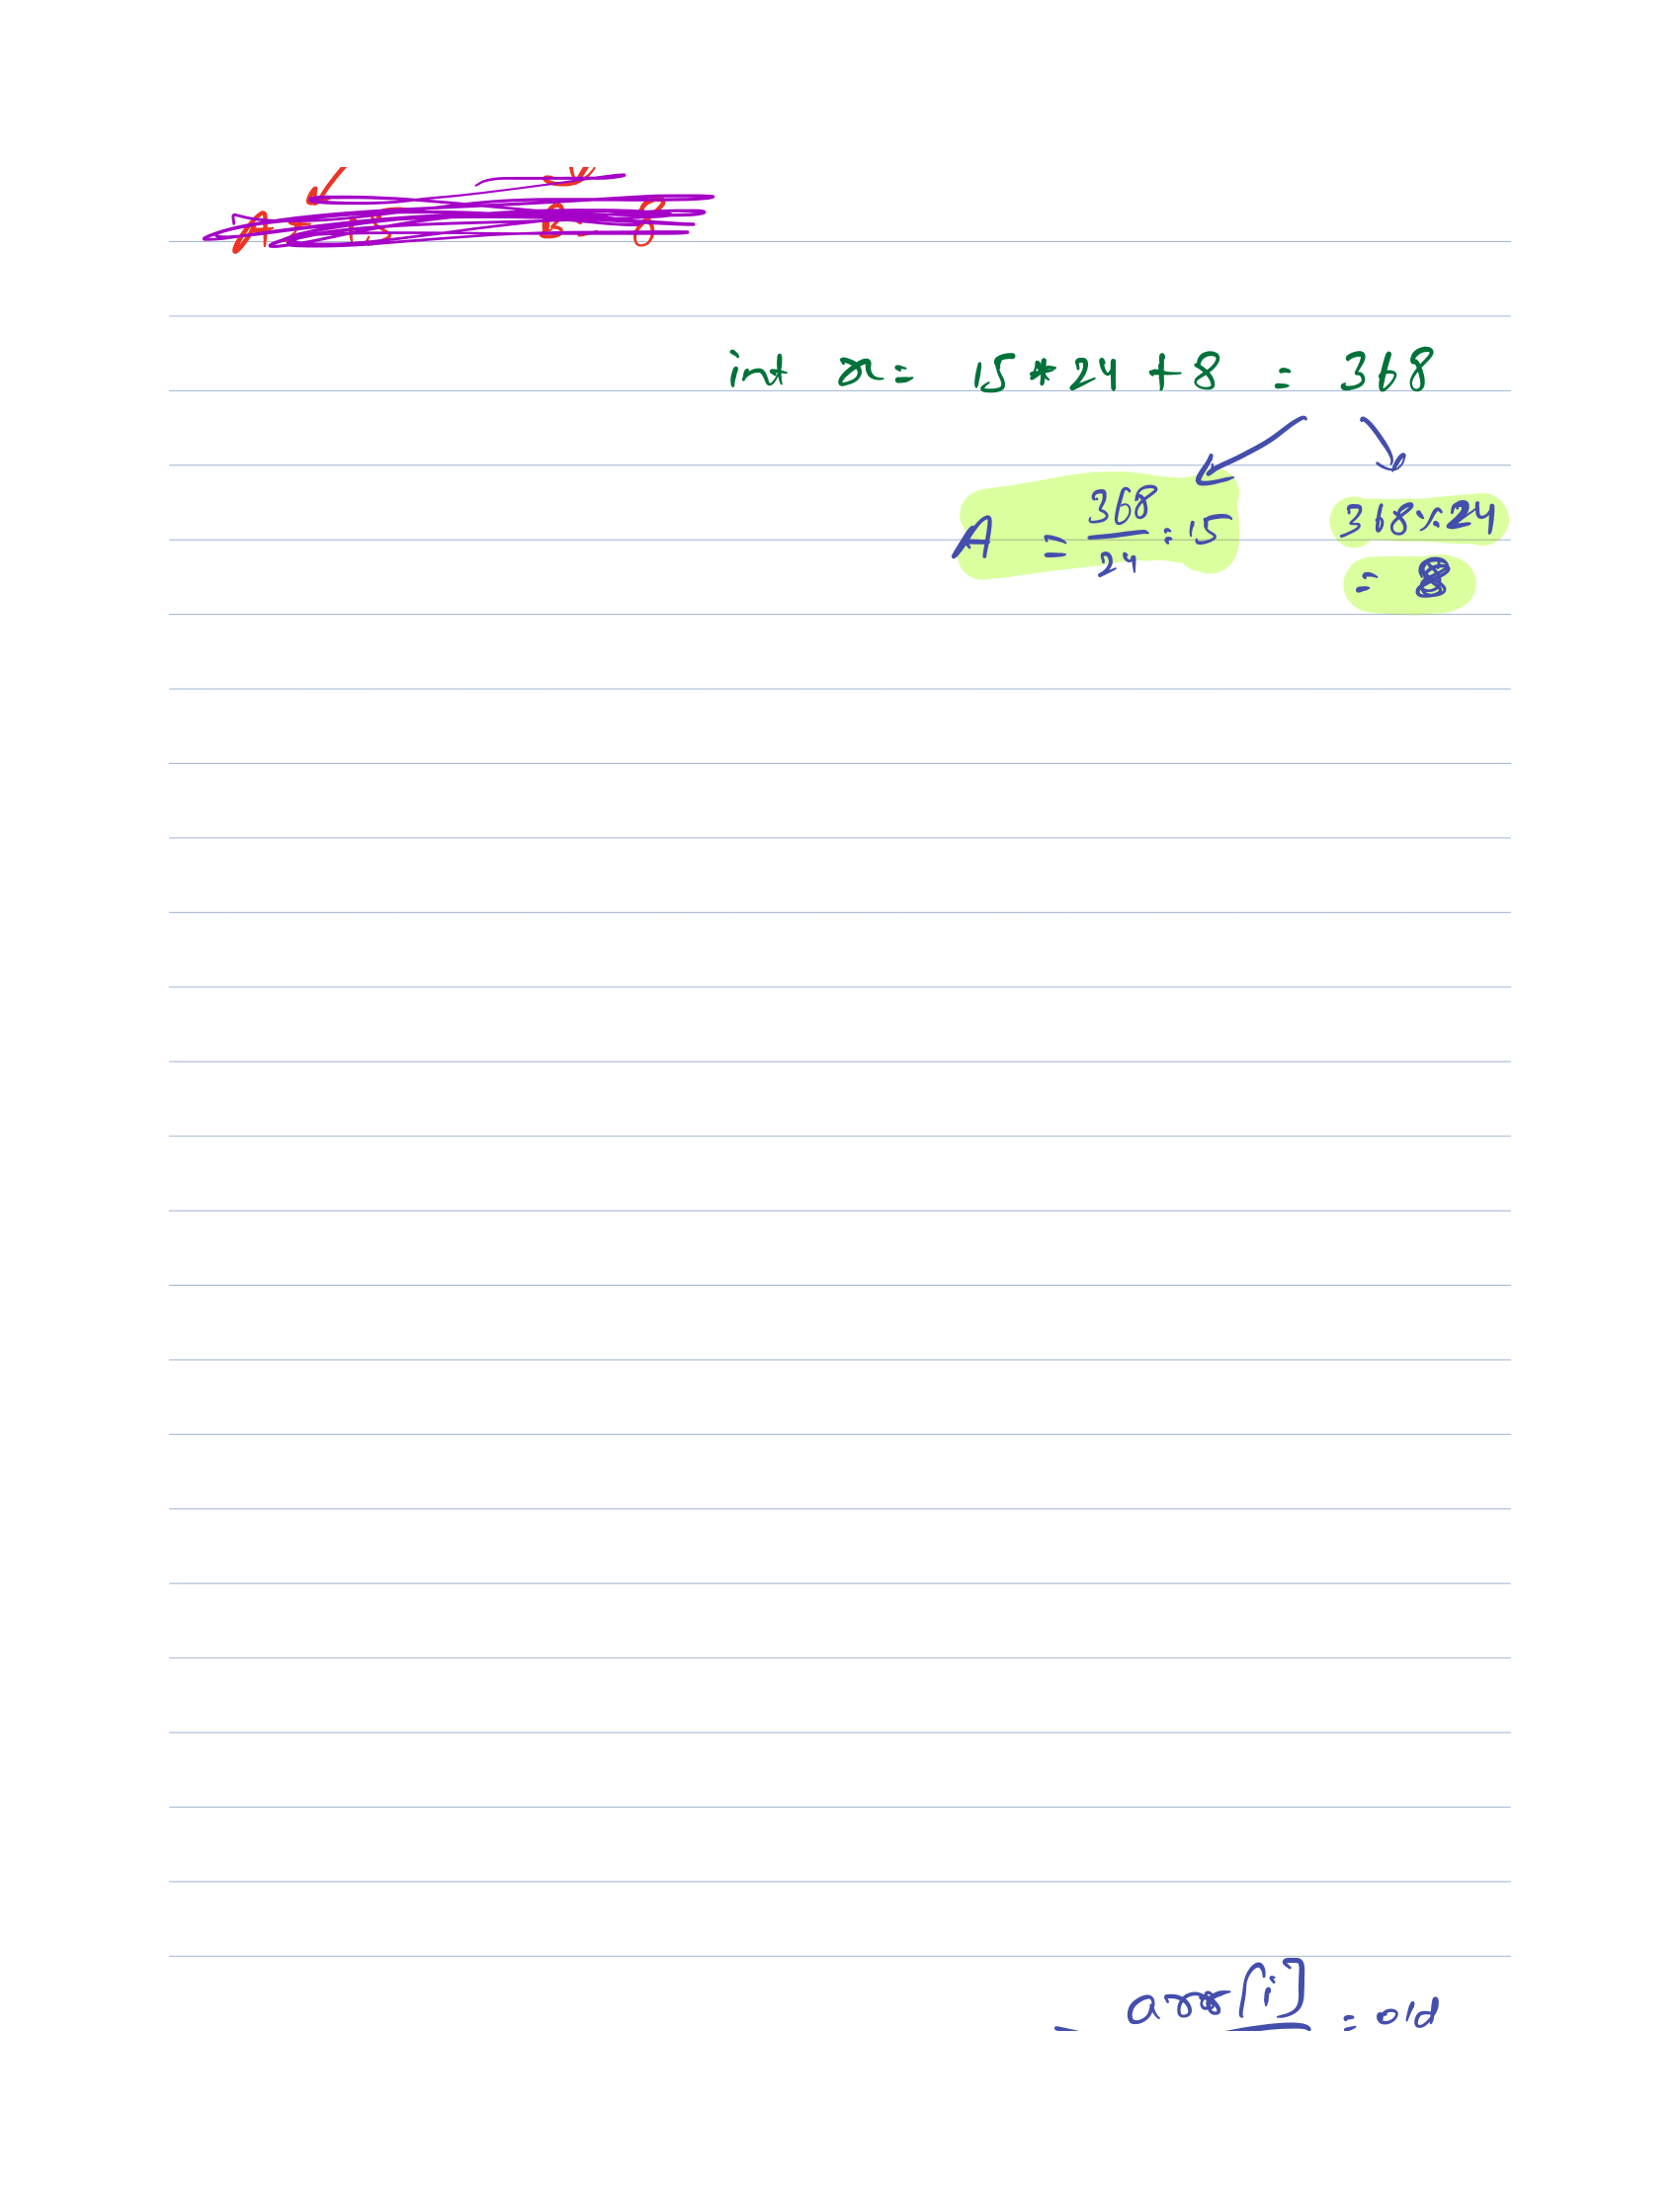 int x = 15 * 24 + 8 = 368
A = 368 / 24 = 15
368 % 24
= 8
arr[i] = old